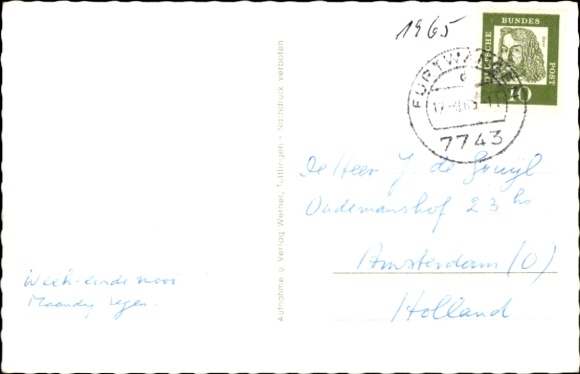 1965
DEUTSCHE BUNDES POST
10
FURTWANGEN
d
7743
De Heer J. de
Oudemanshof 23 hs
Amsterdam (O)
Holland
Week-einde mooi
Maandag regen.
Aufnahme u Verlag Werner, Tuttlingen - Nachdruck verboten